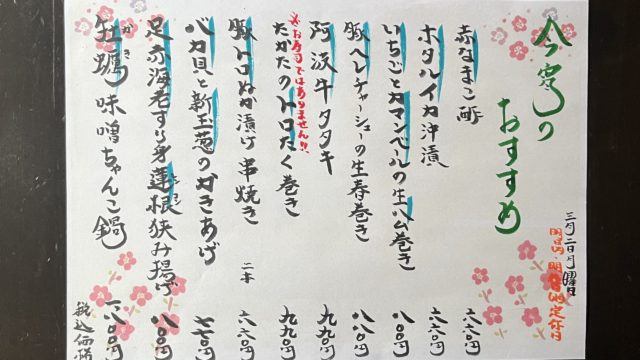 今宵の
おすすめ
三月二日月曜日
赤なまこ酢 六六〇円
ホタルイカ沖漬 六六〇円
いちごとカマンベールの生ハム巻き 八〇〇円
豚ヘレチャーシューの生春巻き 八八〇円
阿波牛タタキ 九九〇円
※お寿司ではありません!!
たかたのトロたく巻き 九九〇円
豚トロぬか漬け串焼き 二本 六六〇円
バカ貝と新玉葱のかきあげ
足赤海老すり身蓮根挟み揚げ 八〇〇円
牡蠣味噌ちゃんこ鍋 一八〇〇円
税込価格